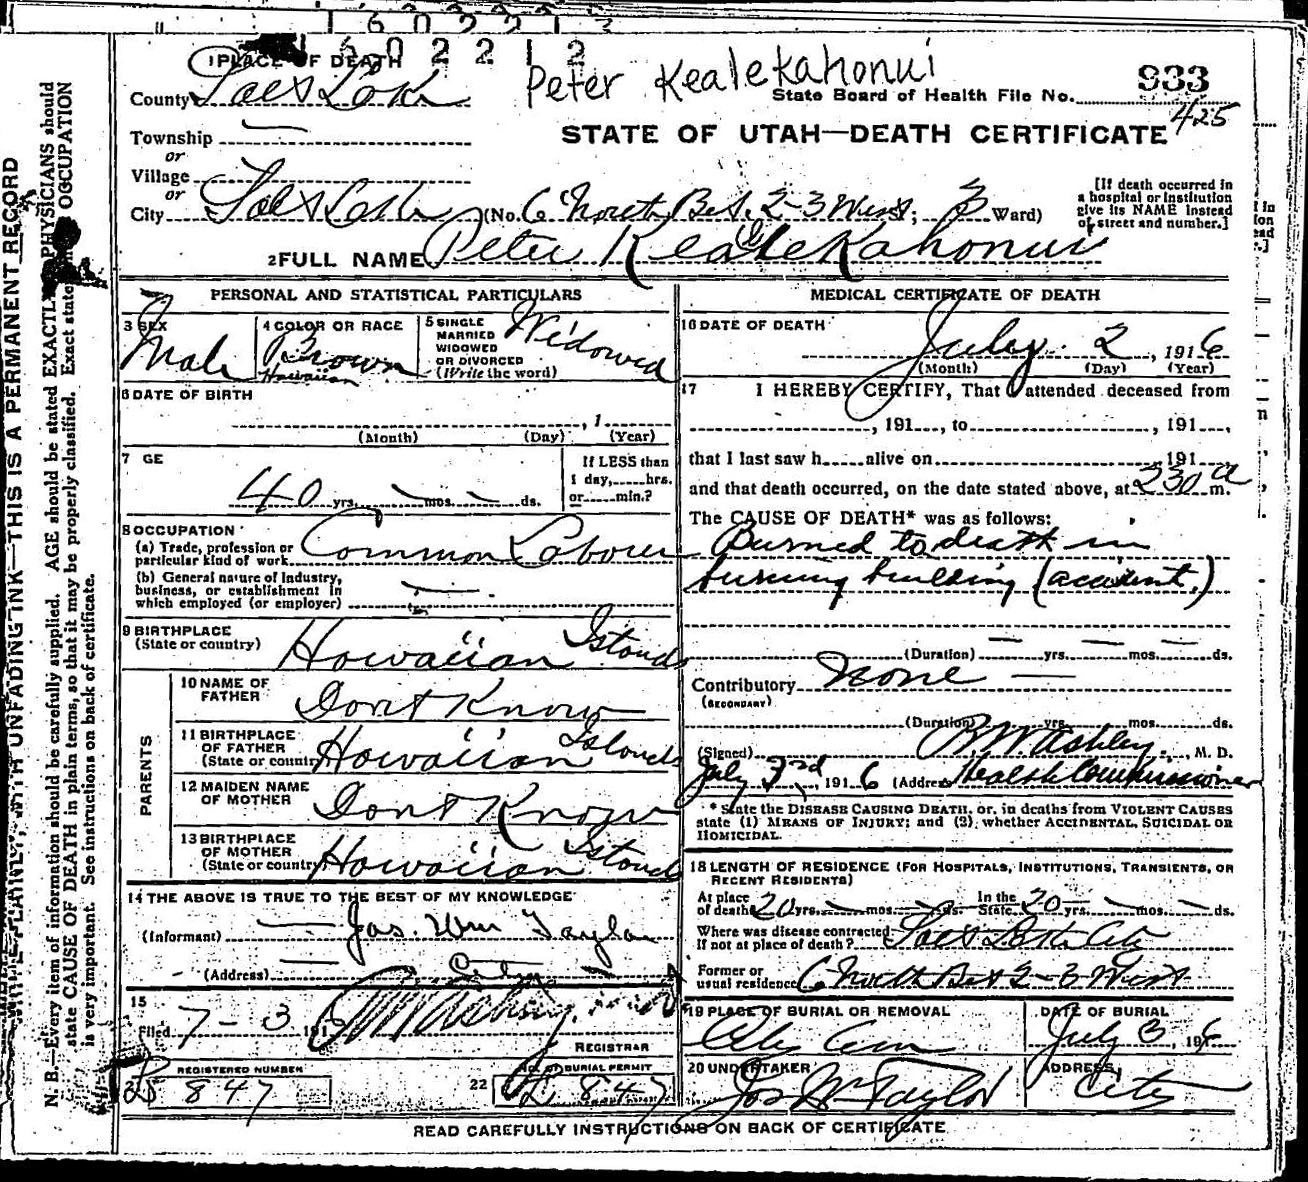 1 PLACE OF DEATH
County Salt Lake
Peter Kealekahonui
933
State Board of Health File No.
425
STATE OF UTAH—DEATH CERTIFICATE
Township
or
Village
or
City Salt Lake (No. 6 North Bet. 2-3 West; 3 Ward)
[If death occurred in
a hospital or institution
give its NAME instead
of street and number.]
2 FULL NAME Peter Kealekahonui
PERSONAL AND STATISTICAL PARTICULARS
3 SEX
Male
4 COLOR OR RACE
Brown
Hawaiian
5 SINGLE
MARRIED
WIDOWED
OR DIVORCED
(Write the word)
Widowed
6 DATE OF BIRTH
, 1
(Month) (Day) (Year)
7 GE
40 yrs. mos. ds.
If LESS than
1 day, hrs.
or min.?
8 OCCUPATION
(a) Trade, profession or
particular kind of work Common Laborer
(b) General nature of industry,
business, or establishment in
which employed (or employer)
9 BIRTHPLACE
(State or country) Hawaiian Islands
PARENTS
10 NAME OF
FATHER Dont Know
11 BIRTHPLACE
OF FATHER
(State or country) Hawaiian Islands
12 MAIDEN NAME
OF MOTHER Dont Know
13 BIRTHPLACE
OF MOTHER
(State or country) Hawaiian Islands
14 THE ABOVE IS TRUE TO THE BEST OF MY KNOWLEDGE
(Informant) Jos. Wm Taylor
(Address) City
15
Filed 7-3 191
REGISTRAR
REGISTERED NUMBER
847
22
NO. OF BURIAL PERMIT
847
MEDICAL CERTIFICATE OF DEATH
16 DATE OF DEATH
July 2, 1916
(Month) (Day) (Year)
17 I HEREBY CERTIFY, That I attended deceased from
, 191 , to , 191 ,
that I last saw h alive on 191
and that death occurred, on the date stated above, at 230 a m.
The CAUSE OF DEATH* was as follows:
Burned to death in
burning building (accident.)
(Duration) yrs. mos. ds.
Contributory None
(SECONDARY)
(Duration) yrs. mos. ds.
(Signed) , M. D.
July 3rd, 1916 (Address) Health Commissioner
* State the DISEASE CAUSING DEATH, or, in deaths from VIOLENT CAUSES
state (1) MEANS OF INJURY; and (2) whether ACCIDENTAL, SUICIDAL OR
HOMICIDAL.
18 LENGTH OF RESIDENCE (FOR HOSPITALS, INSTITUTIONS, TRANSIENTS, OR
RECENT RESIDENTS)
At place
of death 20 yrs. mos. ds.
In the
State 20 yrs. mos. ds.
Where was disease contracted
If not at place of death? Salt Lake City
Former or
usual residence 6 North Bet 2-3 West
19 PLACE OF BURIAL OR REMOVAL
City Cem
DATE OF BURIAL
July 3, 1916
20 UNDERTAKER
Jos Wm Taylor
ADDRESS
City
READ CAREFULLY INSTRUCTIONS ON BACK OF CERTIFICATE
N. B.—Every item of information should be carefully supplied. AGE should be stated EXACTLY. PHYSICIANS should
state CAUSE OF DEATH in plain terms, so that it may be properly classified. Exact OCCUPATION
is very important. See instructions on back of certificate.
UNFADING INK—THIS IS A PERMANENT RECORD